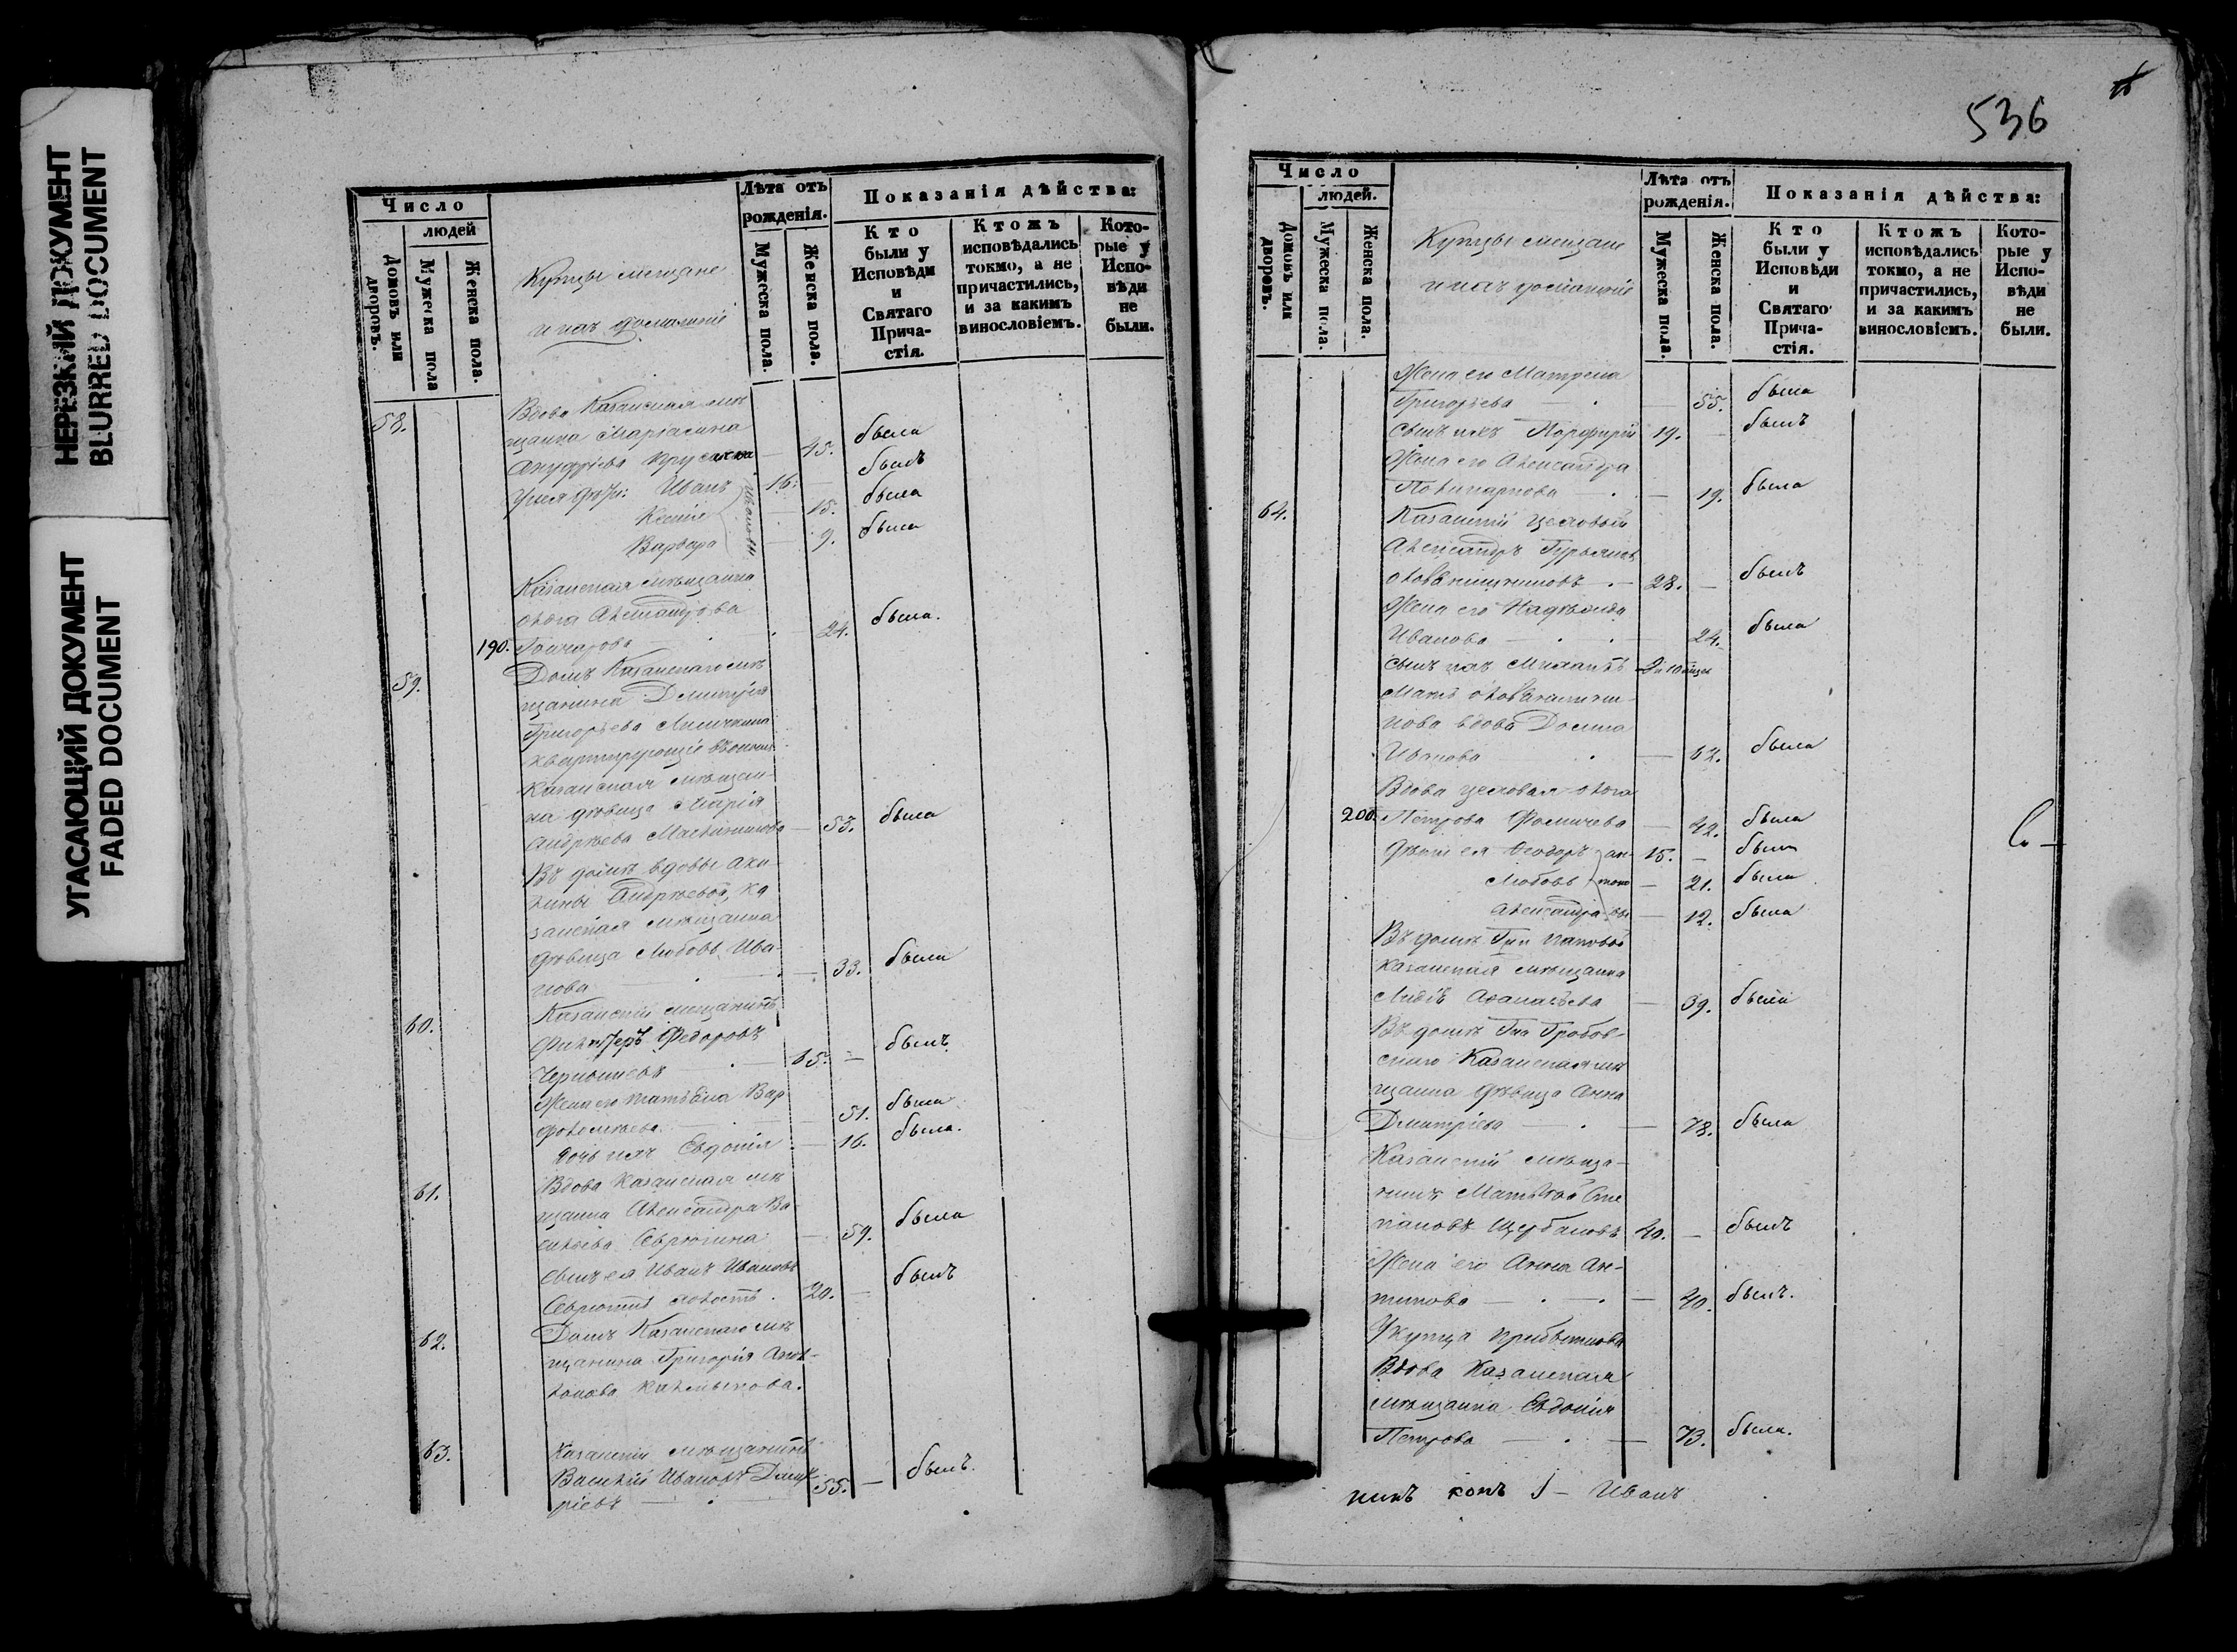 НЕРЕЗКИЙ ДОКУМЕНТ
BLURRED DOCUMENT
УГАСАЮЩИЙ ДОКУМЕНТ
FADED DOCUMENT
Число
людей
Домовъ или дворовъ.
Мужеска пола
Женска пола.
Купцы мещане
и ихъ домашніе
Лѣта отъ рожденія.
Мужеска пола.
Женска пола.
Показанія дѣйства:
Кто были у Исповѣди и Святаго Прича-стія.
Ктожъ исповѣдались токмо, а не причастились, и за какимъ винословіемъ.
Кото-рые у Испо-вѣди не были.
58. Вдова Казанская мѣ
щанка
45. была
Иванъ 16. — былъ
Ксенія — 15. была
Варвара — 9. была
Казанская мѣщанка
Ольга Александрова
190. Гончарова — 24. была.
59. Домъ Казанскаго мѣ
щанина Дмитрія
Григорьева
квартирующіе въ ономъ
Казанская мѣщан-
ка дѣвица Марія
Андрѣева — 53. была
Въ домѣ вдовы Аку-
лины Андрѣевой, Ка
занская мѣщанка
дѣвица Любовь Ива-
нова — 33. была
60. Казанскій мещанинъ
Федоровъ
Чернышевъ — 65. — былъ
Жена его Татьяна Вар
фоломѣева — 51. была
дочь ихъ Евдокія — 16. была.
61. Вдова Казанская мѣ
щанка Александра Ва-
сильева Севрюгина — 59. была
Сынъ ея Иванъ Ивановъ
Севрюгинъ холостъ. 20. — былъ
62. Домъ Казанскаго мѣ
щанина Григорія
63. Казанскій мѣщанинъ
Василій Ивановъ Дмит
ріевъ — 55. — былъ.
536
Число
людей.
Домовъ или дворовъ.
Мужеска пола.
Женска пола.
Купцы мещане
и ихъ домашніе
Лѣта отъ рожденія.
Мужеска пола.
Женска пола.
Показанія дѣйства:
Кто были у Исповѣди и Святаго Прича-стія.
Ктожъ исповѣдались токмо, а не причастились, и за какимъ винословіемъ.
Кото-рые у Испо-вѣди не были.
Жена его Матрена
Григорьева — 55. была
Сынъ ихъ Порфирій 19. — былъ
Жена его Александра
Поликарпова — 19. была
64. Казанскій цеховый
Александръ Гурьяновъ
28. — былъ
Жена его Надѣжда
Иванова — 24. была
Сынъ ихъ
Мать
нова вдова Домна
Иванова — 62. была
Вдова цеховая Ольга
200. Петрова Фомичева — 42. была
Дѣти ея Феодоръ 15. — былъ
Любовь — 21. была
Александра — 12. была
Въ домѣ
Казанская мѣщанка
Лидія Афанасьева — 39. была
Въ домѣ
Казанская мѣ
щанка дѣвица Анна
Дмитріева — 78. была
Казанскій мѣща-
нинъ Матвѣй Сте
пановъ Щербаковъ 40. — былъ
Жена его Анна Ан-
типова — 40. былъ.
У купца
Вдова Казанская
мѣщанка Евдокія
Петрова — 73. была.
Иванъ